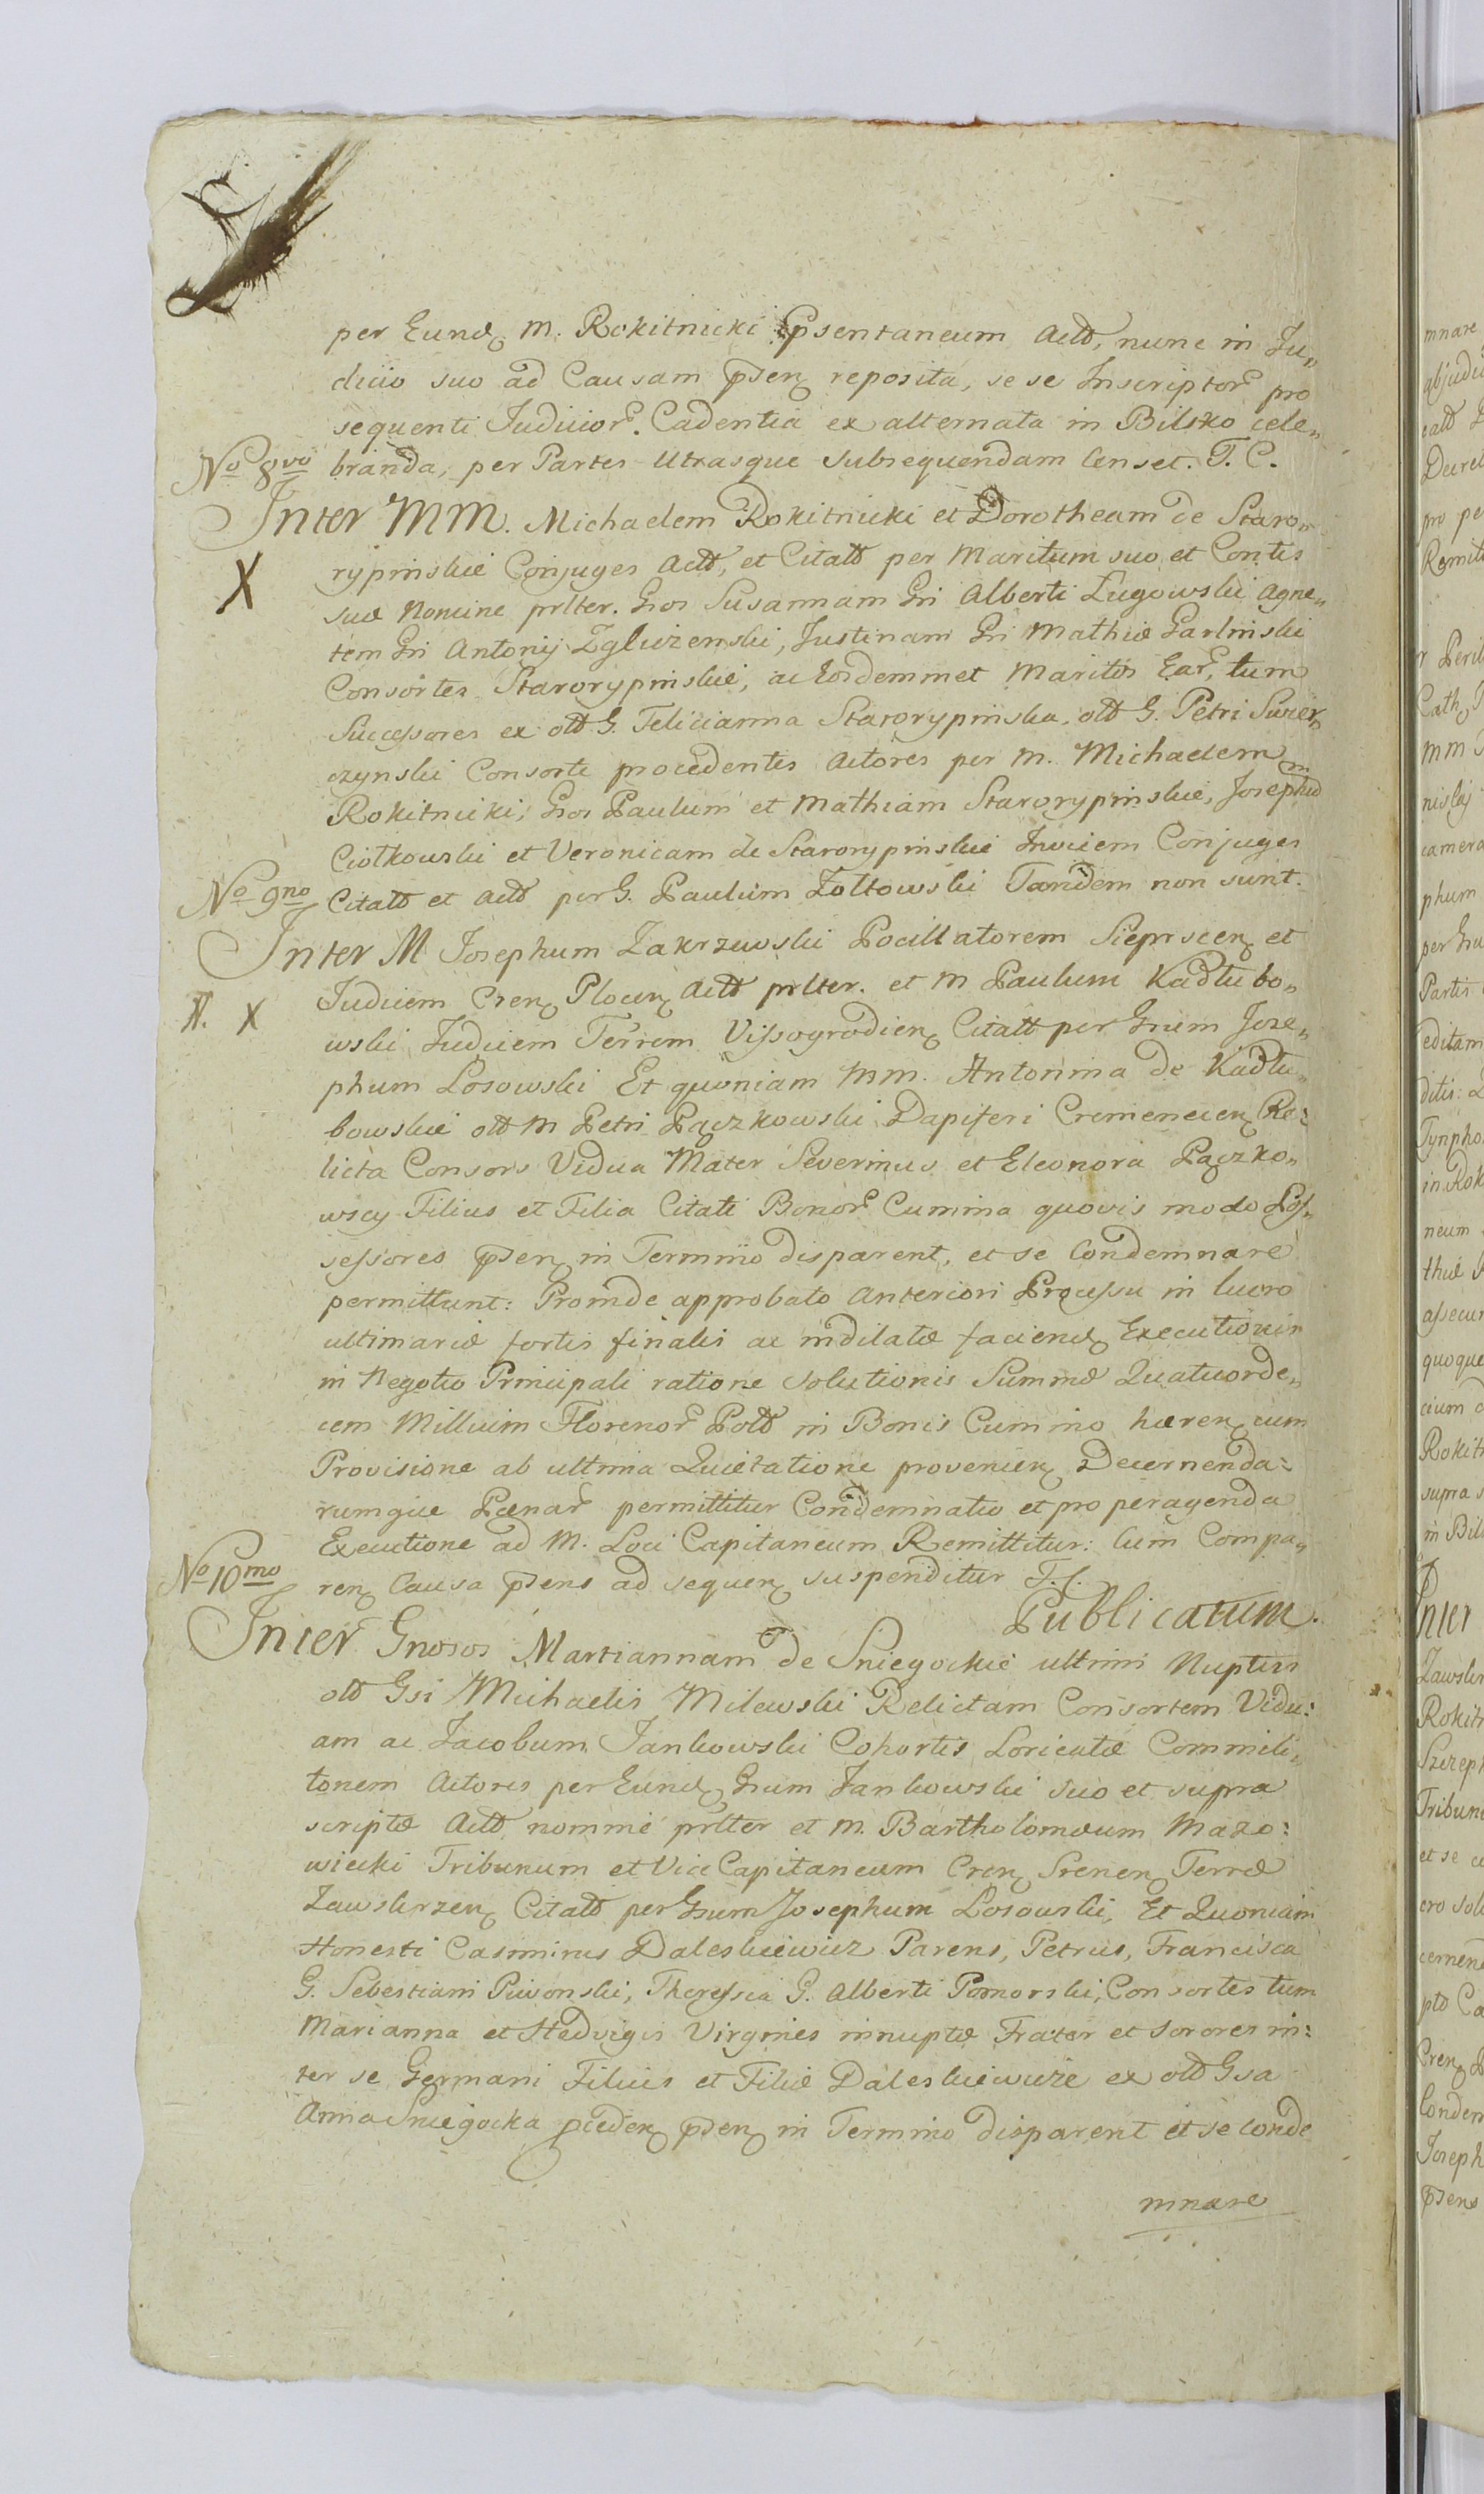 per Eund. M. Rokitnicki Psentaneum Actt, nunc in Ju„
dicio suo ad Causam Psen. reposita, sese Inscriptor. pro
sequenti Judicior. Cadentia ex alternata in Bilsko cele„
No 8vo branda, per Partes Utrasque subsequendam Censet. T. C.
Inter MM. Michaelem Rokitnicki et Dorotheam de Staro„
X rypinskie Conjuges Actt, et Citatt per Maritum suo et Contis
suæ Nomine prlter. Gsos Susannam Gsi Alberti Lugowski Agne„
tem Gsi Antonij Zglużenski, Justinam Gsi Mathiæ Garlinski
Consortes Starorypinskie, ac Eosdemmet Maritos Ear. tum
Successores ex olt G. Felicianna Starorypinska, olt G. Petri Swier„
czynski Consorte procedentes Actores per M. Michaelem
Rokitnicki, Gsos Paulum et Mathiam Starorypinskie, Josephum
Ciołkowski et Veronicam de Starorypinskie Invicem Conjuges
No 9no Citatt et Actt per G. Paulum Zołtowski Tandem non sunt.
Inter M Josephum Zakrzewski Pocillatorem Sieprscen. et
X Judicem Cren. Plocen. Actt prlter. et M Paulum Kadłubo„
wski Judicem Terrem Vissogrodien. Citatt per Gsum Jose„
phum Losowski Et quoniam MM. Antonina de Kadłu„
bowskie olt M Petri Pączkowski Dapiferi Cremenecen. Re:
licta Consors Vidua Mater Severinus et Eleonora Pączko„
wscy Filius et Filia Citati Bonor. Cumina quovis modo Pos„
sessores Psen. in Termino disparent, et se Condemnare
permittunt: Proinde approbato Anteriori Processu in lucro
ultimariæ fortis finalis ac indilatæ faciend. Executionis
in Negotio Principali ratione solutionis Summæ Quatuorde„
cem Millium Florenor. Polt in Bonis Cummino hæren. cum
Provisione ab ultima Quietatione provenien. Decernenda:
rumque Pœnar. permittitur Condemnatio et pro peragenda
Executione ad M. Loci Capitaneum Remittitur: Cum Compa„
No 10mo ren. Causa Psens ad sequen. suspenditur T. C.
Publicatum.
Inter Gnosos Martiannam de Sniegockie ultimi Nuptus
olt Gsi Michaelis Milewski Relictam Consortem Vidu:
am ac Jacobum Jankowski Cohortis Loricatæ Commili„
tonem Actores per Eund. Gsum Jankowski suo et supra
scriptæ Actt nomine prlter et M. Bartholomæum Mazo:
wiecki Tribunum et Vice Capitaneum Cren. Srenen. Terræ
Zawskrzen. Citatt per Gsum Josephum Losowski, Et Quoniam
Honesti Casimirus Daleskiewicz Parens, Petrus, Francisca
G. Sebestiani Piwonski, Theressia G. Alberti Pomorski, Consortes tum
Marianna et Hedvigis Virgines innuptæ Frater et Sorores in:
ter se Germani Filius et Filiæ Daleskiewicze ex olt Gsa
Anna Sniegocka pceden. Psen. in Termino disparent et se Conde
mnare